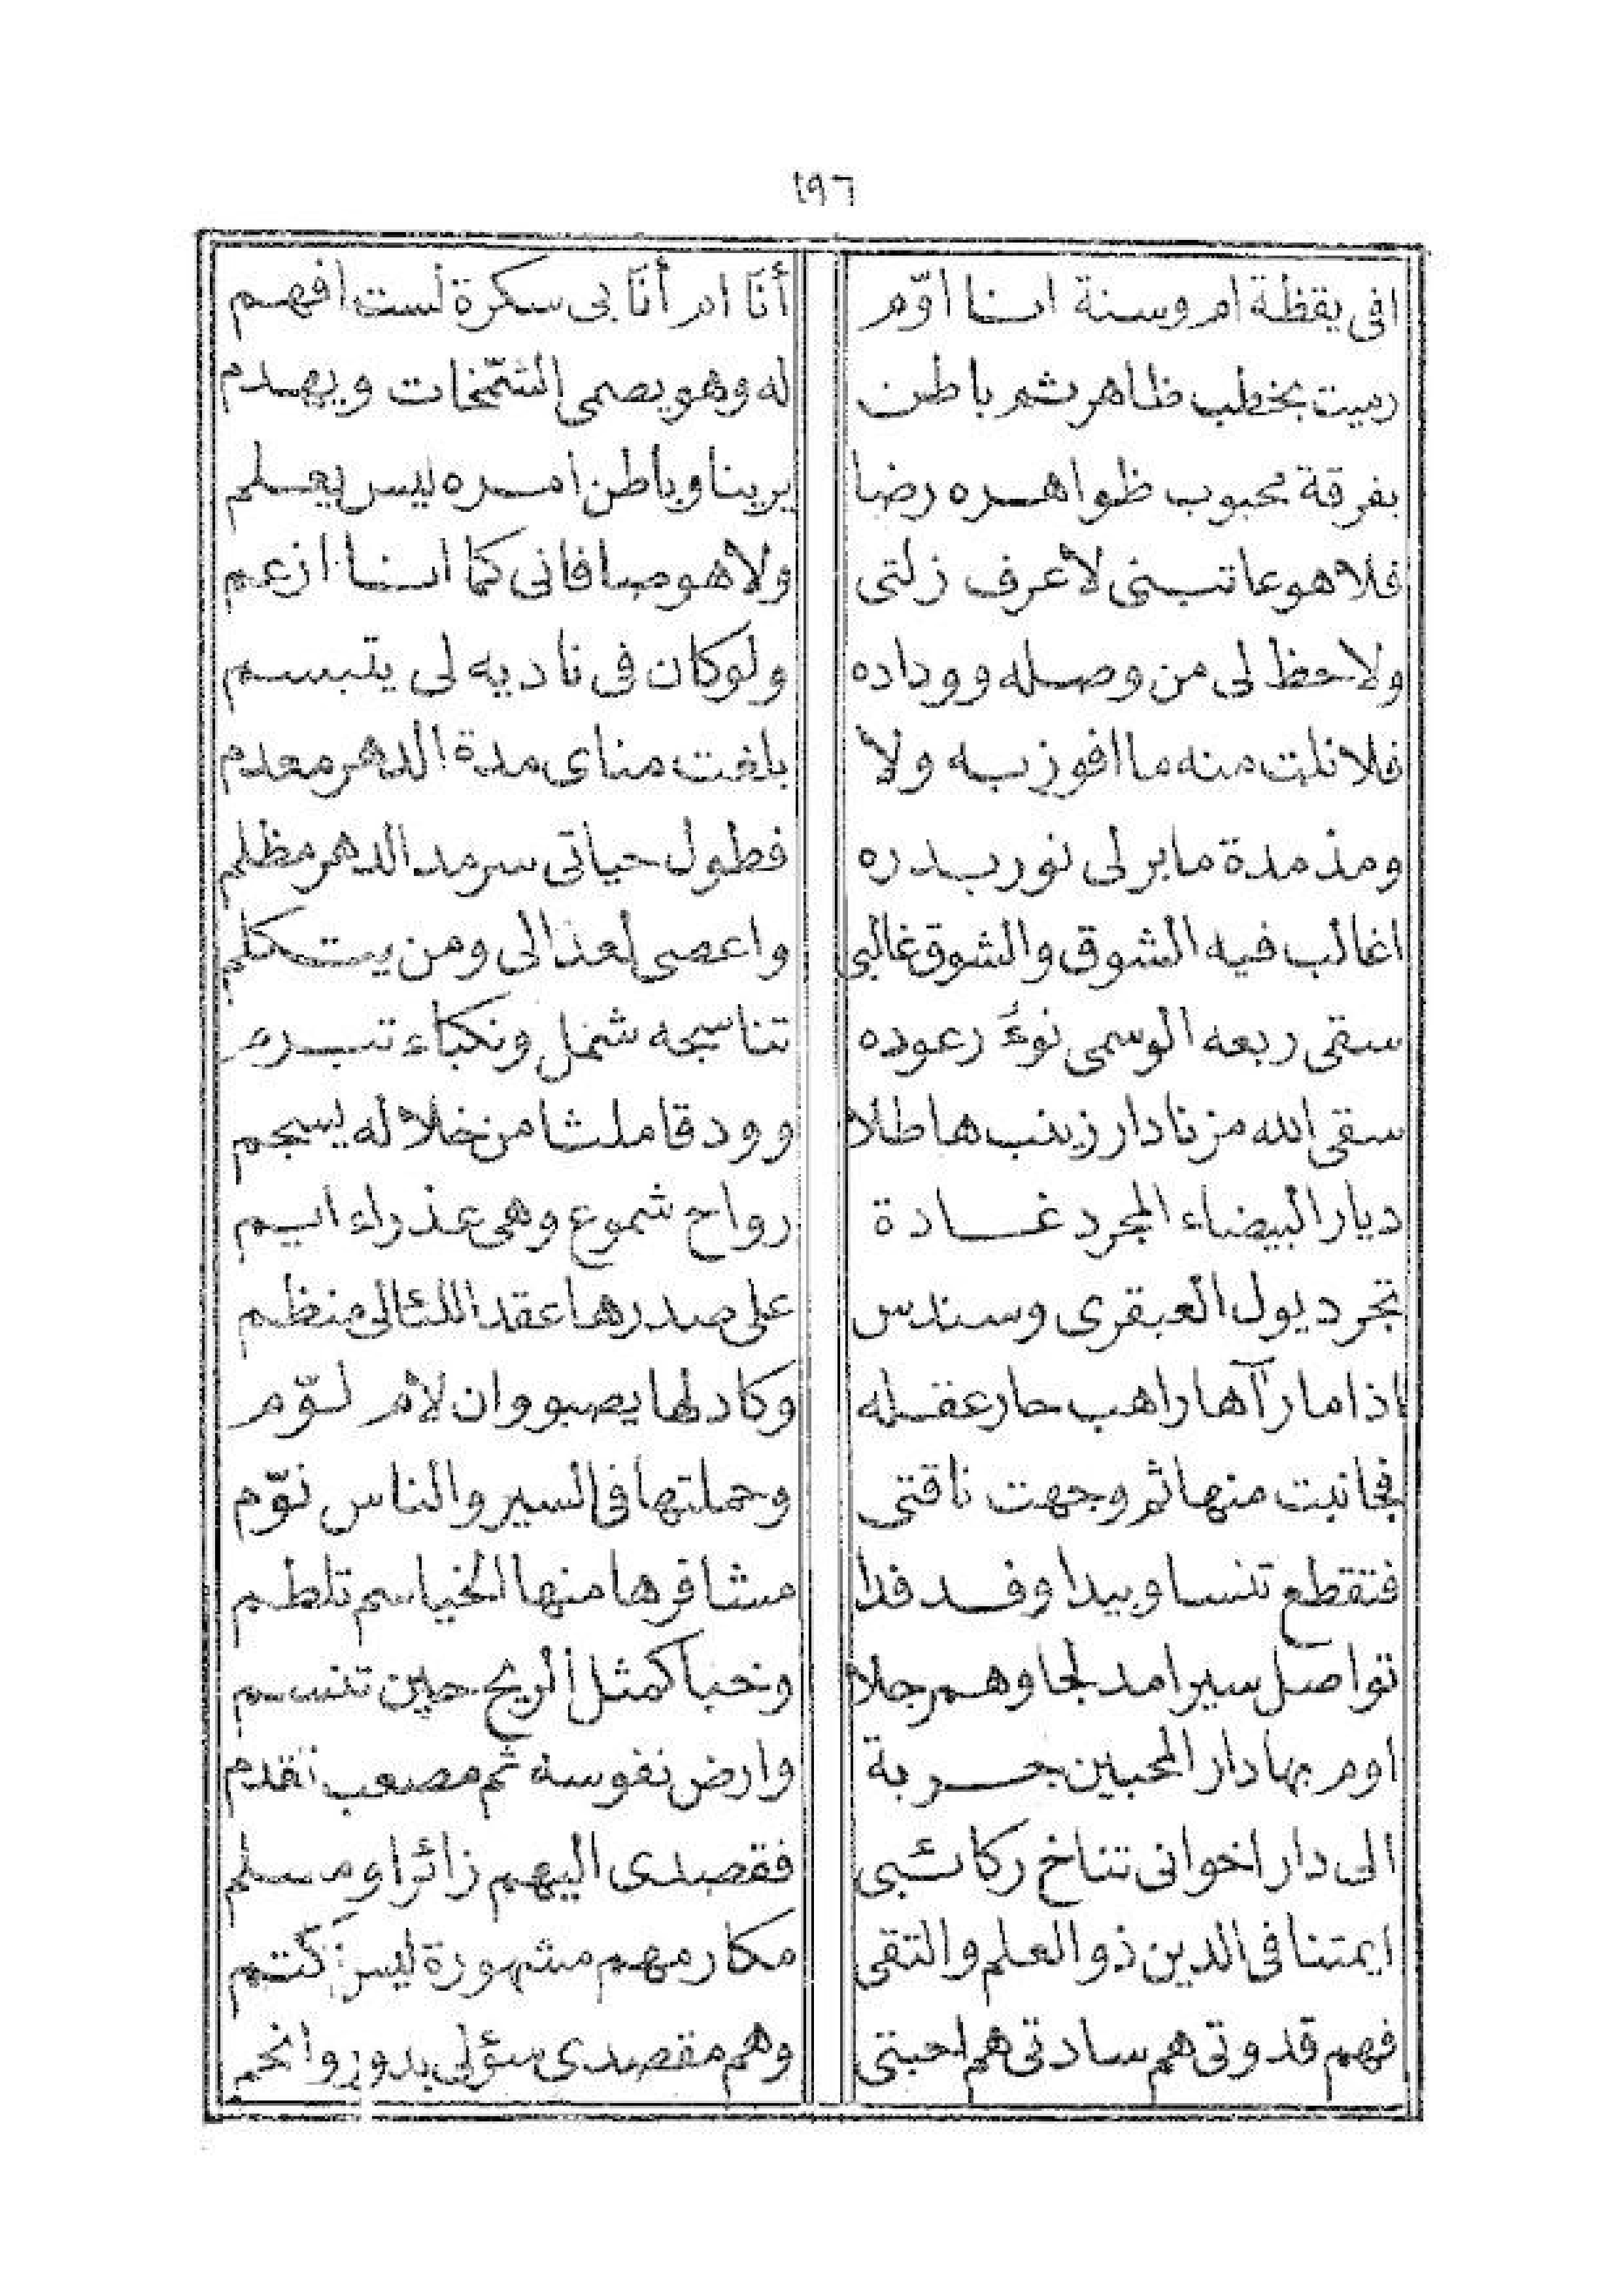 ١٩٦
افى يقظة ام وسنة انا اوّم أنَا ام أنَا بى سكرة لست افهم
رميت بخطب ظاهر ثم باطن له وهو يصمى الشمّخات ويهدم
بفرقة محبوب ظواهره رضا يرينا وباطن امره ليس يعلم
فلا هو عاتبنى لأعرف زلتى ولا هو صافانى كما انا ازعم
ولا حظ لى من وصله ووداده ولو كان فى ناديه لى يتبسم
فلا نلت منه ما افوز به ولا بلغت مناى مدة الدهر معدم
ومذ مدة ما بر لى نور بدره فطول حياتى سرمد الدهر مظلم
اغالب فيه الشوق والشوق غالبى واعصى لعذالى ومن يتكلم
سقى ربعه الوسمى نوءُ رعوده تناسجه شمل ونكباء تبرم
سقى الله مزنا دار زينب هاطلا وودقا ملثا من خلاله يسجم
ديار البيضاء المجرد غادة رواح شموع وهى عذراء ايم
تجر ديول العبقرى وسندس على صدرها عقد اللئالى منظم
اذا ما رآها راهب حار عقله وكاد لها يصبو وان لأم لوّم
فجانبت منها ثم وجهت ناقتى وحملتها فى السير والناس نوّم
فتقطع تنسا وبيدا وفدفدا مشافرها منها الخياسم تلطم
تواصل سيرا مدلجا وهمرجلا وخبا كمثل الريح حين تنسم
اوم بها دار المحبين جربة وارض نفوسة ثم مصعب تقدم
الى دار اخوانى تناخ ركائبى فقصدى اليهم زائرا ومسلم
ايمتنا فى الدين ذو العلم والتقى مكارمهم مشهورة ليس تكتم
فهم قدوتى هم سادتى هم احبتى وهم مقصدى سؤلى بدور وانجم